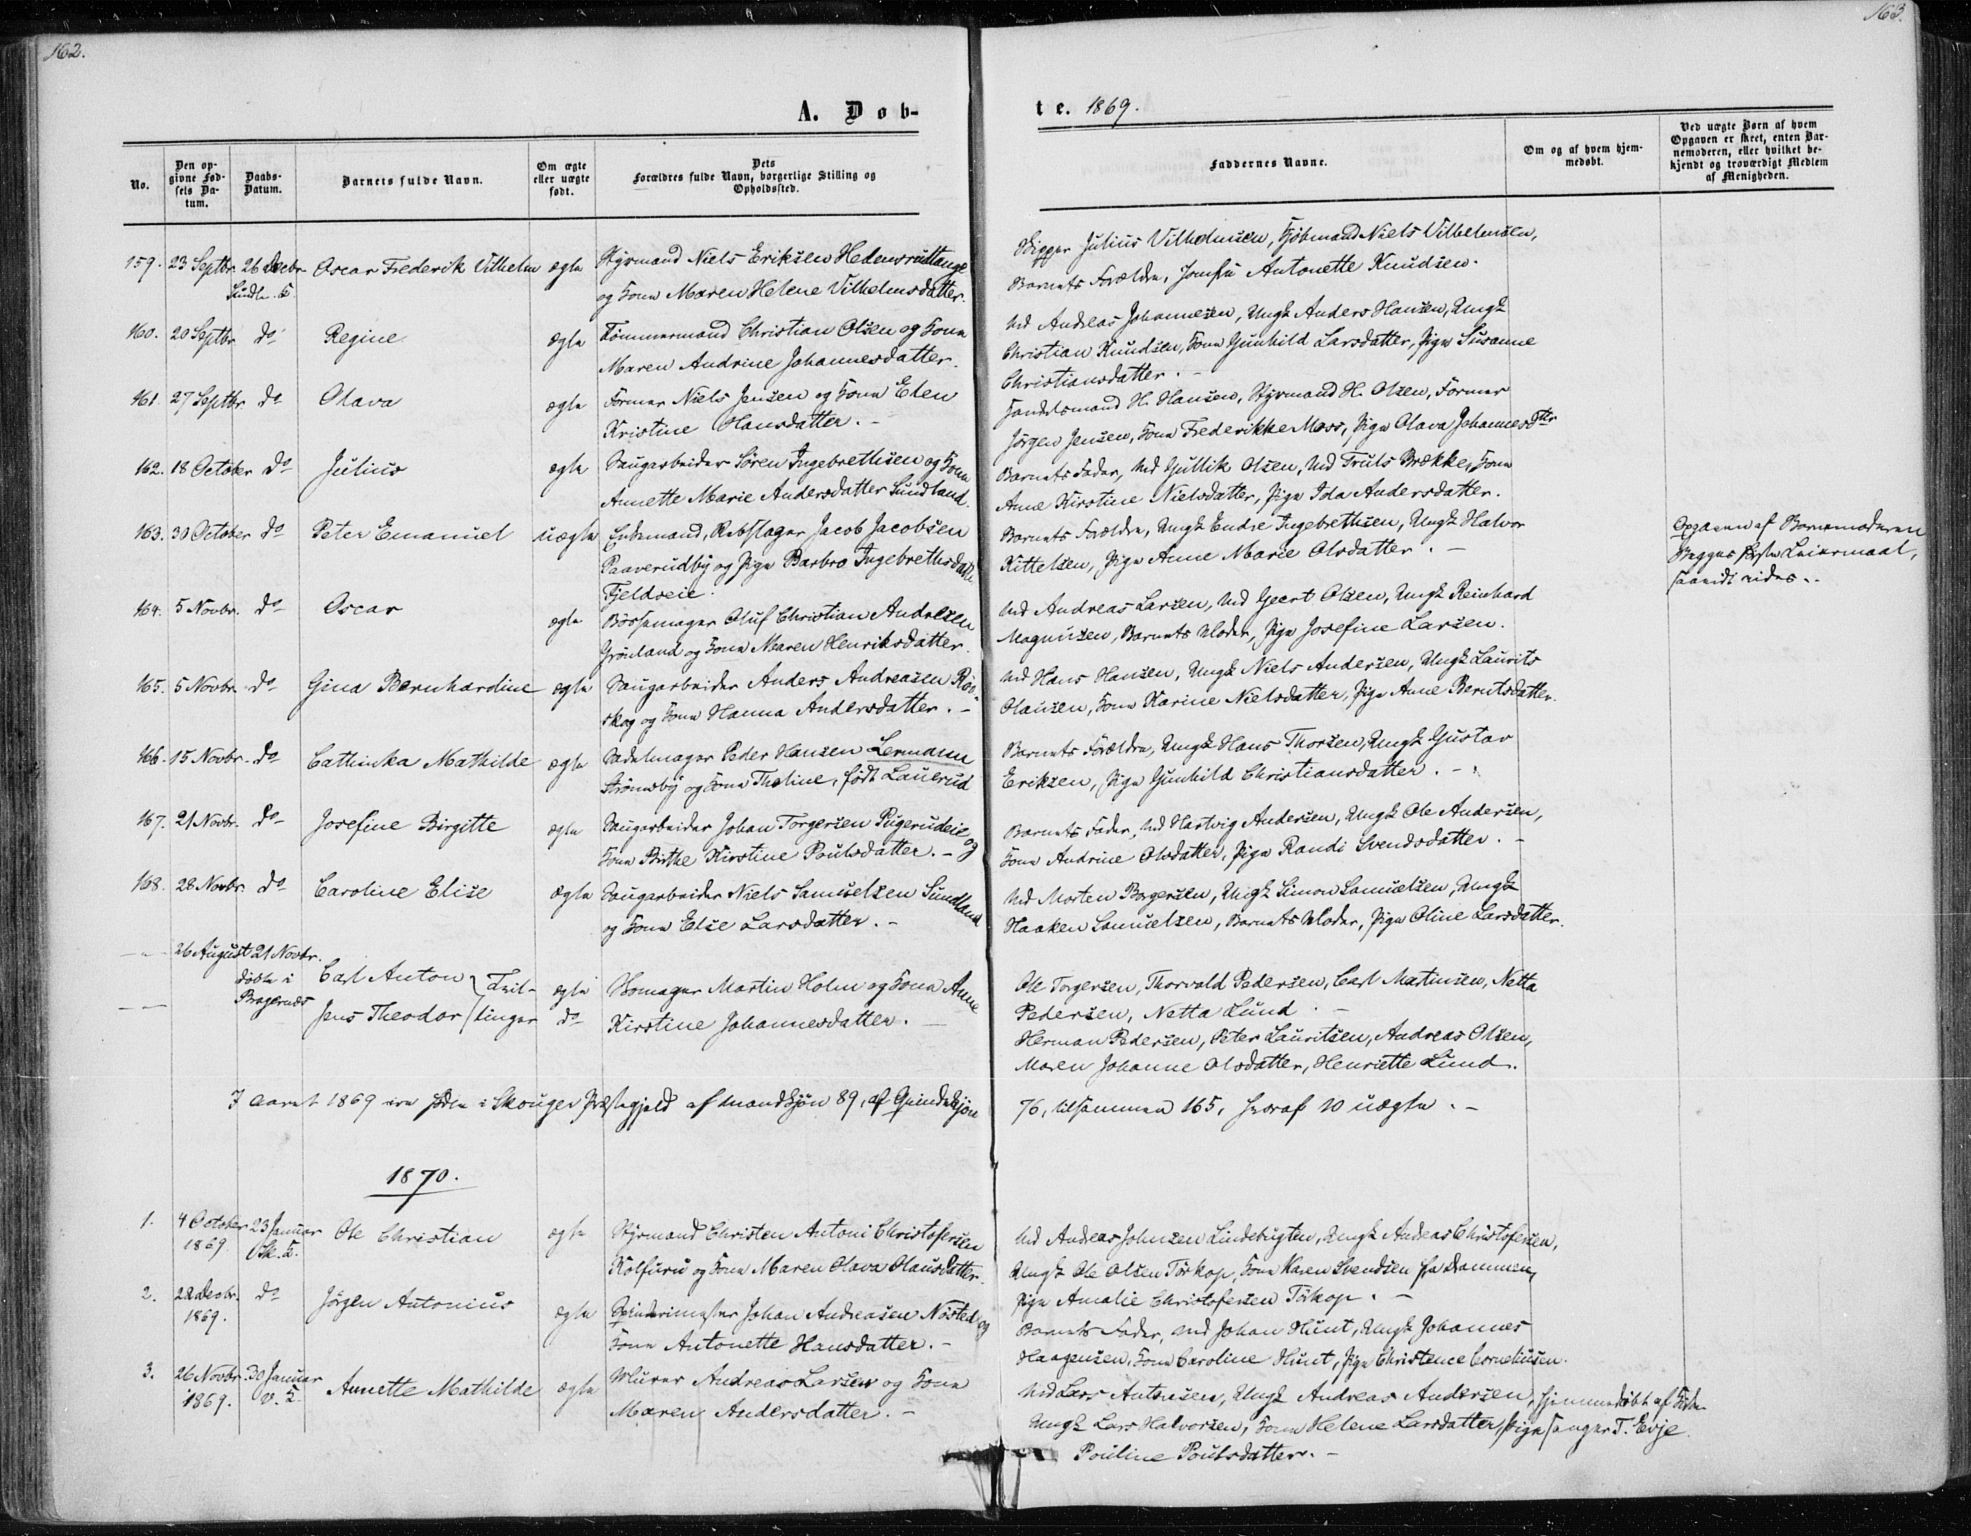 162.
163.
A. Døb-
te. 1869.
No.
Den opgivne Fødsels Datum.
Daabs-Datum.
Barnets fulde Navn.
Om ægte eller uægte født.
Dets Forældres fulde Navn, borgerlige Stilling og Opholdssted.
Faddernes Navne.
Om og af hvem hjemmedøbt.
Ved uægte Børn af hvem Opgaven er skeet, enten Barnemoderen, eller hvilket bekjendt og troværdigt Medlem af Menigheden.
159. 23 Septbr. 26 Decbr. Oscar Frederik Vilhelm ægte Styrmand Niels Eriksen
og Kone Maren Helene Vilhelmsdatter.
Skipper Julius Vilhelmsen, Kjøbmand Niels Vilhelmsen,
Barnets Forældre, Jomfru Antonette Knudsen.
160. 20 Septbr. do Regine ægte Tømmermand Christian Olsen og Kone
Maren Andrine Johannesdatter.
Md Andreas Johannesen, Ungk Anders Hansen, Ungk
Christian Knudsen, Kone Gunhild Larsdatter, Pige Susanne
Christiansdatter. -
161. 27 Septbr. do Olava ægte Former Niels Jensen og Kone Elen
Kristine Hansdatter. -
Handelsmand H. Hansen, Styrmand H. Olsen, Former
Jørgen Jensen, Kone Frederikke Moss, Pige Olava Johannesdtr
162. 18 October do Julius ægte Saugarbeider Søren Ingebrethsen og Kone
Annette Marie Andersdatter Sundland.
Barnets Fader, Md Gullik Olsen, Md Truls Brække, Kone
Anne Kirstine Nielsdatter, Pige Ida Andersdatter.
163. 30 October do Peter Emanuel uægte Enkemand, Rebslager Jacob Jacobsen
Paaverudby og Pige Barbro Ingebrethsdatter
Fjeldseie.
Barnets Forældre, Ungk Endre Ingebrethsen, Ungk Halvor
Kittelsen, Pige Anne Marie Olsdatter. -
Opgaven af Barnemoderen
Begges første Leiermaal,
saavidt vides. -
164. 5 Novbr. do Oscar ægte Bøssemager Oluf Christian Andresen
Grønland og Kone Maren Henriksdatter.
Md Andreas Larsen, Md Geert Olsen, Ungk Reinhard
Magnusen, Barnets Moder, Pige Josefine Larsen.
165. 5 Novbr. do Gina Bernhardine ægte Saugarbeider Anders Andreasen Røs-
skog og Kone Hanna Andersdatter. -
Md Hans Hansen, Ungk Niels Andersen, Ungk Laurits
Olausen, Kone Karine Nielsdatter, Pige Anne Berntsdatter.
166. 15 Novbr. do Cathinka Mathilde ægte Sadelmager Peder Hansen Lermann
Strømsby og Kone Theline, født Lauerud
Barnets Forældre, Ungk Hans Thorsen, Ungk Gustav
Eriksen, Pige Gunhild Christiansdatter. -
167. 21 Novbr. do Josefine Birgitte ægte Saugarbeider Johan Torgersen Pugerudeie og
Kone Birthe Kirstine Poulsdatter. -
Barnets Fader, Md Hartvig Andersen, Ungk Ole Andersen,
Kone Andrine Olsdatter, Pige Randi Svendsdatter. -
168. 28 Novbr. do Caroline Elise ægte Saugarbeider Niels Samuelsen Sundland
og Kone Else Larsdatter. -
Md Morten Borgersen, Ungk Simon Samuelsen, Ungk
Haaken Samuelsen, Barnets Moder, Pige Oline Larsdatter.
26 August 21 Novbr. døbte i Bragernæs
Carl Anton } Tvil- ægte Skomager Martin Holm og Kone Anne
Jens Theodor } linger do Kirstine Johannesdatter. -
Ole Torgersen, Thorvald Pedersen, Carl Martinsen, Netta
Pedersen, Netta Lund. -
Herman Pedersen, Peter Lauritsen, Andreas Olsen,
Maren Johanne Olsdatter, Henriette Lund.
I Aaret 1869 ere fødte i Skouger Præstegjeld af Mandkjøn 89, af Qvindekjøn
76, tilsammen 165, hvoraf 10 uægte. -
1870.
1. 4 October 1869. 23 Januar Sk. K. Ole Christian ægte Styrmand Christen Antoni Christofersen
Kolfuru og Kone Maren Olava Hansdatter.
Md Andreas Johnsen Lindebugten, Ungk Andreas Christofersen,
Ungk Ole Olsen Tørkop, Kone Karen Svendsen fra Drammen,
Pige Amalie Christofersen Tørkop. -
2. 22 Decbr. 1869. do Jørgen Antonius ægte Spinderimester Johan Andreasen Nøsted og
Kone Antonette Hansdatter. -
Barnets Fader, Md Johan Hunt, Ungk Johannes
Haagensen, Kone Caroline Hunt, Pige Christence Corneliusen.
3. 26 Novbr. 1869. 30 Januar V. K. Annette Mathilde ægte Murer Andreas Larsen og Kone
Maren Andersdatter. -
Md Lars Antonsen, Ungk Andreas Andersen,
Ungk Lars Halvorsen, Kone Helene Larsdatter, Pige
Pouline Poulsdatter. -
Hjemmedøbt af Kirke-
sanger T. Evje.